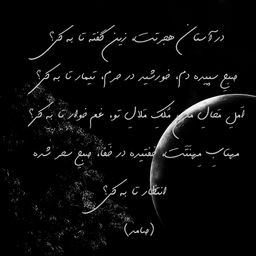 در آستان هجرتت، زین گفته تا به کی؟
صبح سپیده دم، خورشید در حرم، تیمار تا به کی؟
اَملِ مَحالِ من، مُلک مَلالِ تو، غم خوار تا به کی؟
مهتابِ مِهنَتَت، خفتیده در خَفا، صبحِ سحر شده
انتظار تا به کی؟
(حامد)